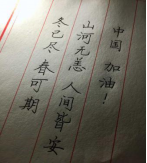 中国 加油！
山河无恙 人间皆安
冬已尽 春可期